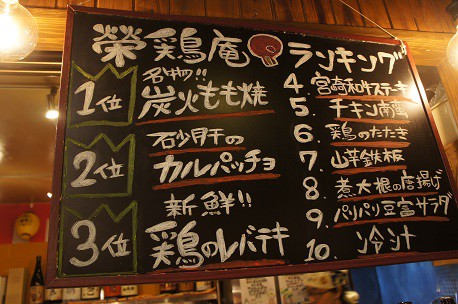 榮鶏庵 ランキング
1位
名物!!
炭火もも焼
2位
砂肝の
カルパッチョ
3位
新鮮!!
鶏のレバテキ
4. 宮崎和牛ステーキ
5. チキン南蛮
6. 鶏のたたき
7. 山芋鉄板
8. 煮大根の唐揚げ
9. パリパリ豆富サラダ
10. 冷汁